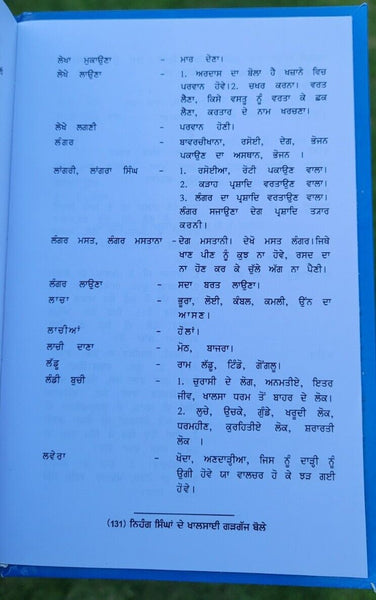 ਲੇਖਾ ਮੁਕਾਉਣਾ - ਮਾਰ ਦੇਣਾ।
ਲੇਖੇ ਲਾਉਣਾ - 1. ਅਰਦਾਸ ਦਾ ਬੋਲਾ ਹੈ ਖਜ਼ਾਨੇ ਵਿਚ
ਪਰਵਾਨ ਹੋਵੇ।2. ਚਖਰ ਕਰਨਾ। ਵਰਤ
ਲੈਣਾ, ਕਿਸੇ ਵਸਤੂ ਨੂੰ ਵਰਤਾ ਕੇ ਛਕ
ਲੈਣਾ, ਕਰਤਾਰ ਦੇ ਨਾਮ ਖਰਚਣਾ।
ਲੇਖੇ ਲਗਣੀ - ਪਰਵਾਨ ਹੋਣੀ।
ਲੰਗਰ - ਬਾਵਰਚੀਖਾਨਾ, ਰਸੋਈ, ਦੇਗ, ਭੋਜਨ
ਪਕਾਉਣ ਦਾ ਅਸਥਾਨ, ਭੋਜਨ ।
ਲਾਂਗਰੀ, ਲਾਂਗਰਾ ਸਿੰਘ - 1. ਰਸੋਈਆ, ਰੋਟੀ ਪਕਾਉਣ ਵਾਲਾ।
2. ਕੜਾਹ ਪ੍ਰਸ਼ਾਦਿ ਵਰਤਾਉਣ ਵਾਲਾ।
3. ਲੰਗਰ ਦਾ ਪ੍ਰਸ਼ਾਦਿ ਵਰਤਾਉਣ ਵਾਲਾ।
ਲੰਗਰ ਸਜਾਉਣਾ ਦੇਗ ਪ੍ਰਸ਼ਾਦਿ ਤਯਾਰ
ਕਰਨੀ।
ਲੰਗਰ ਮਸਤ, ਲੰਗਰ ਮਸਤਾਨਾ - ਦੇਗ ਮਸਤਾਨੀ। ਦੇਖੋ ਮਸਤ ਲੰਗਰ।ਜਿਥੇ
ਖਾਣ ਪੀਣ ਨੂੰ ਕੁਝ ਨਾ ਹੋਵੇ, ਰਸਦ ਦਾ
ਨਾ ਹੋਣ ਕਰ ਕੇ ਚੁੱਲੇ ਅੱਗ ਨਾ ਪੈਣੀ।
ਲੰਗਰ ਲਾਉਣਾ - ਸਦਾ ਬਰਤ ਲਾਉਣਾ।
ਲਾਚਾ - ਭੂਰਾ, ਲੋਈ, ਕੰਬਲ, ਕਮਲੀ, ਉੱਨ ਦਾ
ਆਸਣ।
ਲਾਚੀਆਂ - ਹੋਲਾਂ।
ਲਾਚੀ ਦਾਣਾ - ਮੋਠ, ਬਾਜਰਾ।
ਲੱਡੂ - ਰਾਮ ਲੱਡੂ, ਟਿੰਡੋ, ਗੋਂਗਲੂ।
ਲੰਡੀ ਬੁਚੀ - 1. ਚੁਰਾਸੀ ਦੇ ਲੋਗ, ਅਨਮਤੀਏ, ਇਤਰ
ਜੀਵ, ਖਾਲਸਾ ਧਰਮ ਤੋਂ ਬਾਹਰ ਦੇ ਲੋਕ।
2. ਲੁਚੇ, ਉਚਕੇ, ਗੁੰਡੇ, ਖਰੂਦੀ ਲੋਕ,
ਧਰਮਹੀਣ, ਕੁਰਹਿਤੀਏ ਲੋਕ, ਸ਼ਰਾਰਤੀ
ਲੋਕ ।
ਲਵੇਰਾ - ਖੋਦਾ, ਅਣਦਾੜ੍ਹੀਆ, ਜਿਸ ਨੂੰ ਦਾੜ੍ਹੀ ਨਾ
ਉਗੀ ਹੋਵੇ ਯਾ ਵਾਲਚਰ ਹੋ ਕੇ ਝੜ ਗਈ
ਹੋਵੇ।
(131) ਨਿਹੰਗ ਸਿੰਘਾਂ ਦੇ ਖਾਲਸਾਈ ਗੜਗੱਜ ਬੋਲੇ